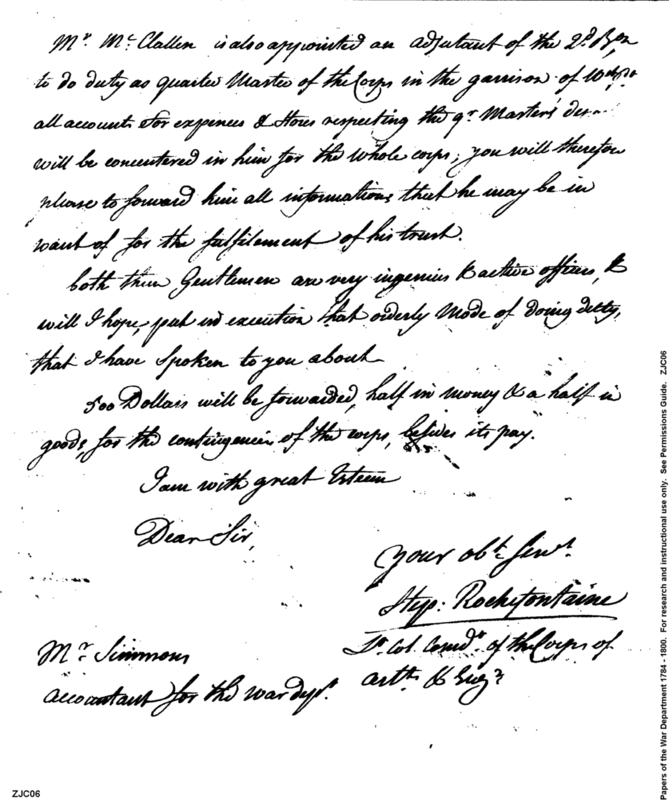 Mr. Mc Clallen is also appointed an adjutant of the 2d. B.on
to do duty as quarter Master of the Corps in the garrison of
all accounts for expences & Stores respecting the qr. Masters'
will be concentered in him for the whole corps; you will therefore
please to forward him all informations that he may be in
want of for the fulfilement of his trust.
both these Gentlemen are very ingenius & active officers, &
will I hope, put in execution that orderly Mode of doing duty,
that I have spoken to you about
500 Dollars will be forwarded, half in money & a half in
goods, for the contingencies of the corps, besides its pay.
I am with great Esteem
Dear Sir,
your obt. Servt.
Step: Rochefontaine
Lt. Col. Comdt. of the Corps of
artts. & Engrs
Mr. Simmons
accountant for the war dept.
ZJC06
Papers of the War Department 1784 - 1800. For research and instructional use only. See Permissions Guide. ZJC06